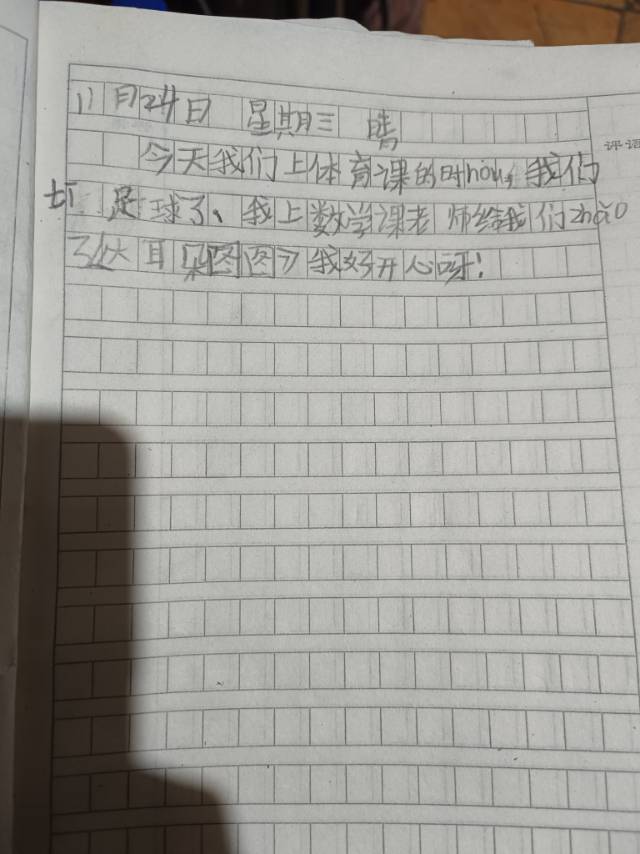 11月24日 星期三 晴
今天我们上体育课的时hou,我们
打足球了、我上数学课老师给我们zhao
了 耳 图图了我好开心呀!
评语